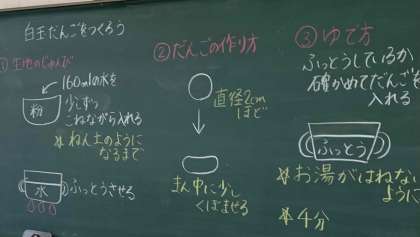 白玉だんごをつくろう
① 生地のじゅんび
160mlの水を
少しずつ
こねながら入れる
粉
※ねん土のように
なるまで
水
ふっとうさせる
② だんごの作り方
直径2cm
ほど
まん中に少し
くぼませる
③ ゆで方
ふっとうしているか
確かめてだんごを
入れる
ふっとう
※お湯がはねない
ように
※4分